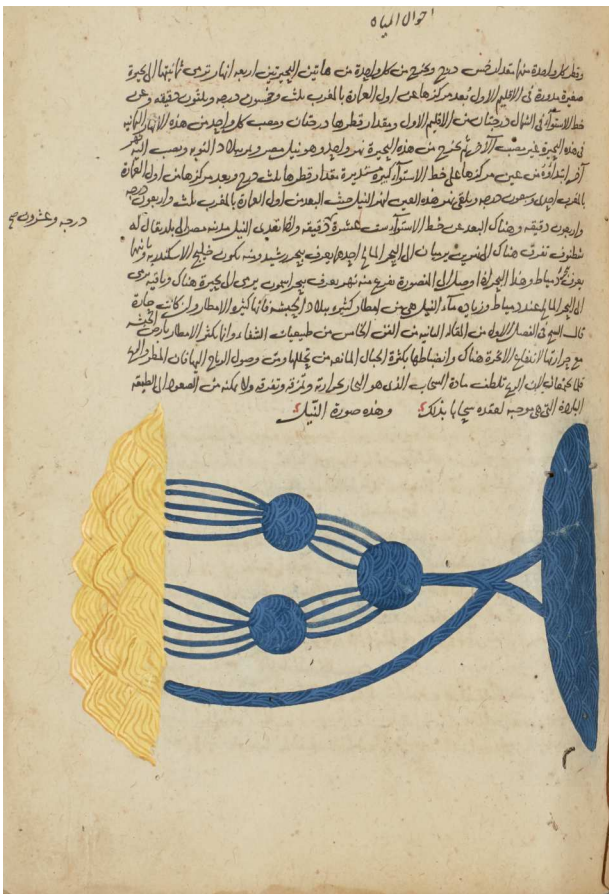 احوال المياه
وقطر كل واحدة منها مقدار خمس درج ويخرج من كل واحدة من هاتين البحيرتين اربعة انهار ترمي ثمانيتها الى بحيرة
صغيرة مدورة في الاقليم الاول بعد مركزها عن اول العمارة بالمغرب ثلث وخمسون درجه وثلثون دقيقه وعن
خط الاستوآء في الشمال درجتان من الاقليم الاول ومقدار قطرها درجتان ومصب كل واحد من هذه الانهار الثمانيه
في هذه البحيرة غير مصب الآخر ثم يخرج من هذه البحيرة نهر واحد وهو نيل مصر ويمر ببلاد النوبه ويصب اليه نهر
آخر ابتداؤه من عين مركزها على خط الاستوآء كبيرة مستديرة مقدار قطرها ثلث درج وبعد مركزها من اول العمارة
بالمغرب احدى وسبعون درجه ويلقى نهر هذه العين لنهر النيل حيث البعد من اول العمارة بالمغرب ثلث واربعون درجه
واربعون دقيقه وهناك البعد عن خط الاستوآء ست عشرة دقيقه واذا تعدى النيل مدينه مصر الى بلد يقال له
درجه وعشرون
شطنوف تفرق هناك الى نهرين يرميان الى البحر المالح احدها يعرف ببحر رشيد ومنه يكون خليج الاسكندريه وثانيها
يعرف ببحر دمياط وهذا البحر اذا وصل الى المنصورة تفرع منه نهر يعرف ببحر اشمون يرمي الى بحيرة هناك وباقيه يرمي
الى البحر المالح عند دمياط وزيادة مآء النيل هي من امطار كثيرة ببلاد الحبشه فانها كثيرة الامطار وان كانت حارة
قال الشيخ في الفصل الاول من المقاله الثانيه من الفن الخامس من طبيعيات الشفاء وانما تكثر الامطار بارض الحبشه
مع حرارتها لاندفاع الابخرة هناك وانضغاطها بكثرة الجبال المانعه من تحللها ومن وصول الرياح اليها فان المطر
فلما يحتقنان يلطف مادة السحاب الذي هو البخار بحرارته وتمزقه وتفرقه ولا يمكنه من الصعود الى الطبقه
الباردة التي هي موجبه لعقده سحابا بذلك وهذه صورة النيل